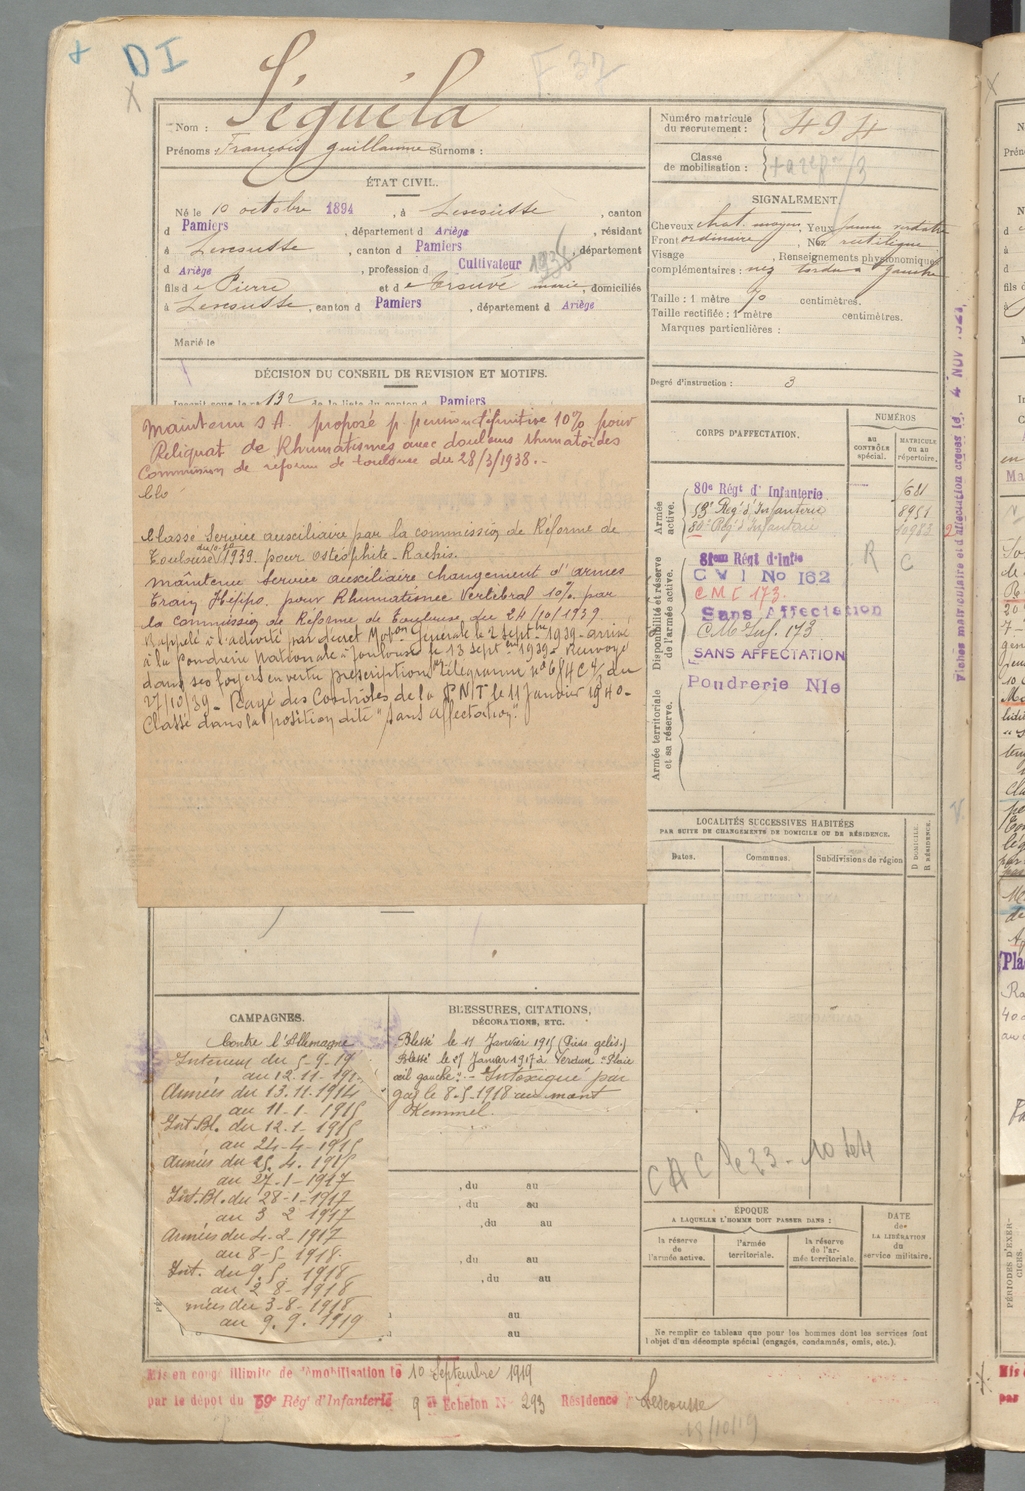 DI
F 37
Nom : Séguéla
Prénoms : François Guillaume Surnoms :
Numéro matricule du recrutement : 494
Classe de mobilisation :
ÉTAT CIVIL.
Né le 10 octobre 1894, à Lescousse, canton
d Pamiers, département d Ariège, résidant
à Lescousse, canton d Pamiers, département
d Ariège, profession d Cultivateur
fils de Pierre et de Trouvé marie, domiciliés
à Lescousse, canton d Pamiers, département d Ariège
Marié le
SIGNALEMENT.
Cheveux chat. moyen, Yeux jaune
Front ordinaire, Nez rectiligne
Visage , Renseignements physionomiques
complémentaires : nez tordu à gauche
Taille : 1 mètre 70 centimètres.
Taille rectifiée : 1 mètre centimètres.
Marques particulières :
Degré d'instruction : 3
DÉCISION DU CONSEIL DE REVISION ET MOTIFS.
Inscrit sous le n° 132 de la liste du canton d Pamiers
Maintenu S A. proposé p. pension définitive 10% pour
Reliquat de Rhumatismes avec douleurs rhumatoïdes
Commission de réforme de toulouse du 28/3/1938.-
Classé Service auxiliaire par la commission de Réforme de
Toulouse 1939. pour ostéophite - Rachis.
maintenu Service auxiliaire changement d'armes
Train Hippo. pour Rhumatisme Vertébral 10% par
la commission de Réforme de Toulouse du 24/10/1939
Rappelé à l'activité par décret Mobon Générale le 2 Septbre 1939 - arrivé
à la Poudrerie Nationale à Toulouse le 13 septbre 1939 - Renvoyé
dans ses foyers en vertu prescriptions télégramme du
27/10/39 - Rayé des Contrôles de la P.N.T le 11 Janvier 1940 -
Classé dans la position dite "sans affectation".
CORPS D'AFFECTATION.
NUMÉROS
au CONTRÔLE spécial.
MATRICULE OU AU répertoire.
Armée active.
80e Régt d' Infanterie
53e Rég' d'Infanterie 8951
80e Rég' d'Infanterie
Disponibilité et réserve de l'armée active.
81eme Régt d'Infie R C
C M I No 162
C M I 173.
Sans Affectation
C.M. Inf. 173
SANS AFFECTATION
Armée territoriale et sa réserve.
Poudrerie Nle
LOCALITÉS SUCCESSIVES HABITÉES
PAR SUITE DE CHANGEMENTS DE DOMICILE OU DE RÉSIDENCE.
Dates.
Communes.
Subdivisions de région
D DOMICILE.
R RÉSIDENCE.
CAMPAGNES.
Contre l'Allemagne
Intérieur du 5-9-14
au 12.11.191
Armées du 13.11.1914
au 11-1-1915
Int. Bl. du 12.1-1915
au 24-4-1915
Armées du 25.4.1915
au 27-1-1917
Int. Bl. du 28-1-1917
au 3 2 1917
Armées du 4-2-1917
au 8-5-1918.
Int. du 9.5. 1918
au 2 8-1918
mées du 3-8-1918
au 9. 9. 1919
BLESSURES, CITATIONS,
DÉCORATIONS, ETC.
Blessé le 11 Janvier 1915 (Pieds gelés.)
Blessé le 27 Janvier 1917 à Verdun "Plaie
œil gauche". - Intoxiqué par
gaz le 8-5-1918 au mont
Kemmel.
, du au
, du au
, du au
, du au
, du au
au
au
C A C le 23-10
ÉPOQUE
A LAQUELLE L'HOMME DOIT PASSER DANS :
la réserve de l'armée active.
l'armée territoriale.
la réserve de l'armée territoriale.
DATE de LA LIBÉRATION du service militaire.
Ne remplir ce tableau que pour les hommes dont les services font
l'objet d'un décompte spécial (engagés, condamnés, omis, etc.).
Mis en congé illimité de démobilisation le 10 Septembre 1919
par le dépôt du 59e Rég' d'Infanterie 9 e Echelon N° 293 Résidence Lescousse
18/10/19
PÉRIODES D'EXERCICES.